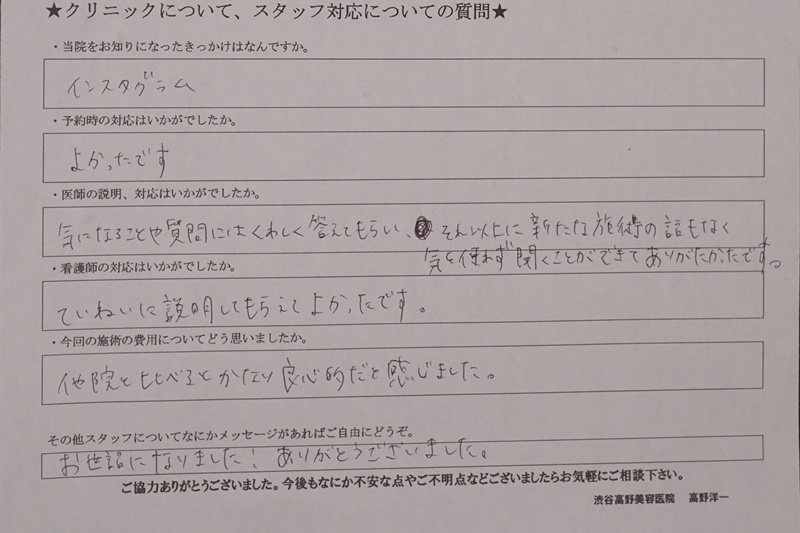 ★クリニックについて、スタッフ対応についての質問★
・当院をお知りになったきっかけはなんですか。
インスタグラム
・予約時の対応はいかがでしたか。
よかったです
・医師の説明、対応はいかがでしたか。
気になることや質問にはくわしく答えてもらい、それ以上に新たな施術の話もなく
気を使わず聞くことができてありがたかったです。
・看護師の対応はいかがでしたか。
ていねいに説明してもらえてよかったです。
・今回の施術の費用についてどう思いましたか。
他院と比べるとかなり良心的だと感じました。
その他スタッフについてなにかメッセージがあればご自由にどうぞ。
お世話になりました！ありがとうございました。
ご協力ありがとうございました。今後もなにか不安な点やご不明点などございましたらお気軽にご相談下さい。
渋谷高野美容医院 高野洋一